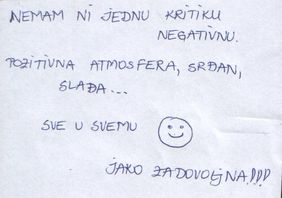 NEMAM NI JEDNU KRITIKU
NEGATIVNU.
POZITIVNA ATMOSFERA, SRĐAN,
SLAĐA...
SVE U SVEMU
JAKO ZADOVOLJNA!!!